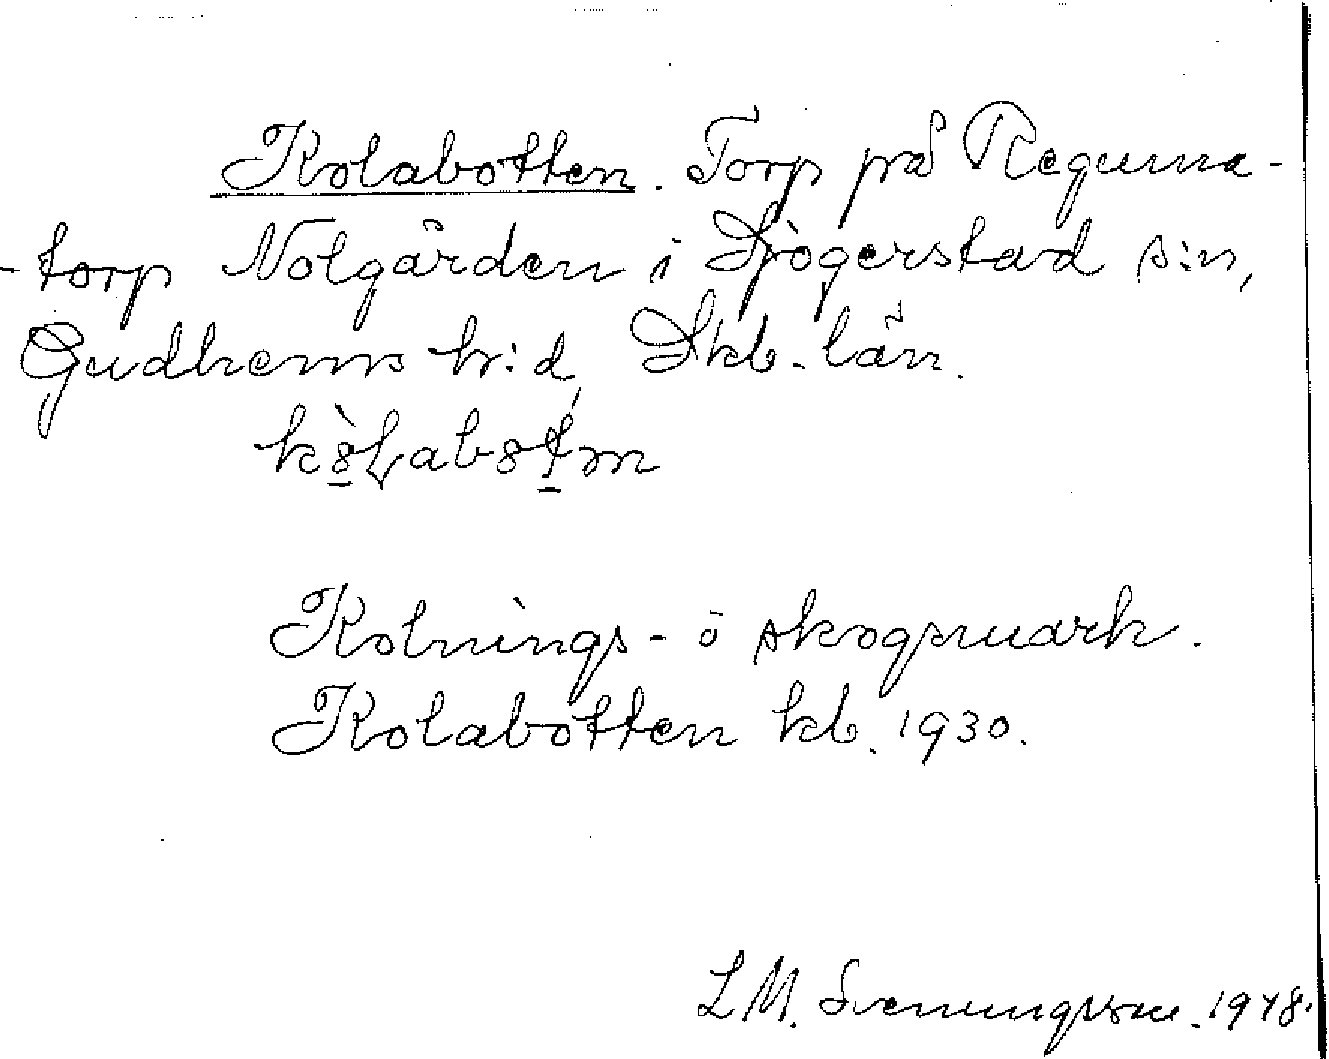 Kolabotten. Torp på Reguma-
-torp Nolgården i Sjögerstad s:n,
Gudhems h:d, Skb. län.
Kolnings- o skogsmark.
Kolabotten kb. 1930.
L.M. Svenungsson. 1948.